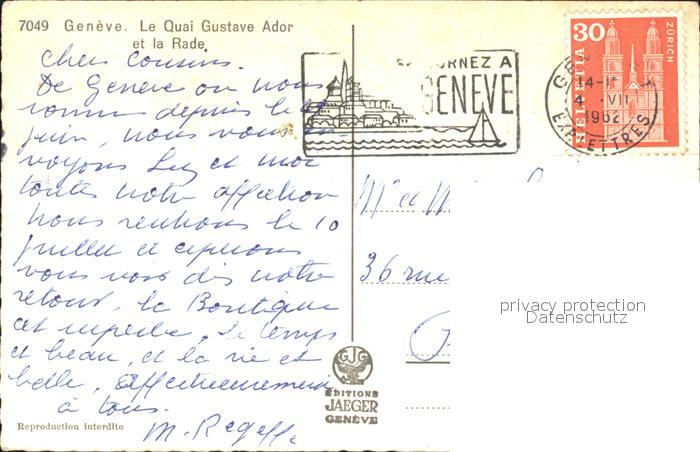 7049 Genève. Le Quai Gustave Ador
et la Rade
chers cousins.
De Genève où nous
sommes depuis le
juin, nous vous
voyons Luz et moi
toutes notre affection
Nous rentrons le 10
juillet et espérons
vous voir dès notre
retour. la Boutique
est superbe, le temps
et beau, et la vie est
belle. affectueusement
à tous.
M.
Reproduction interdite
SÉJOURNEZ A
GENEVE
HELVETIA 30
ZÜRICH
14-
4. VII
1962
EXP. LETTRES
Mr et M
36 rue
privacy protection
Datenschutz
GJG
EDITIONS
JAEGER
GENÈVE